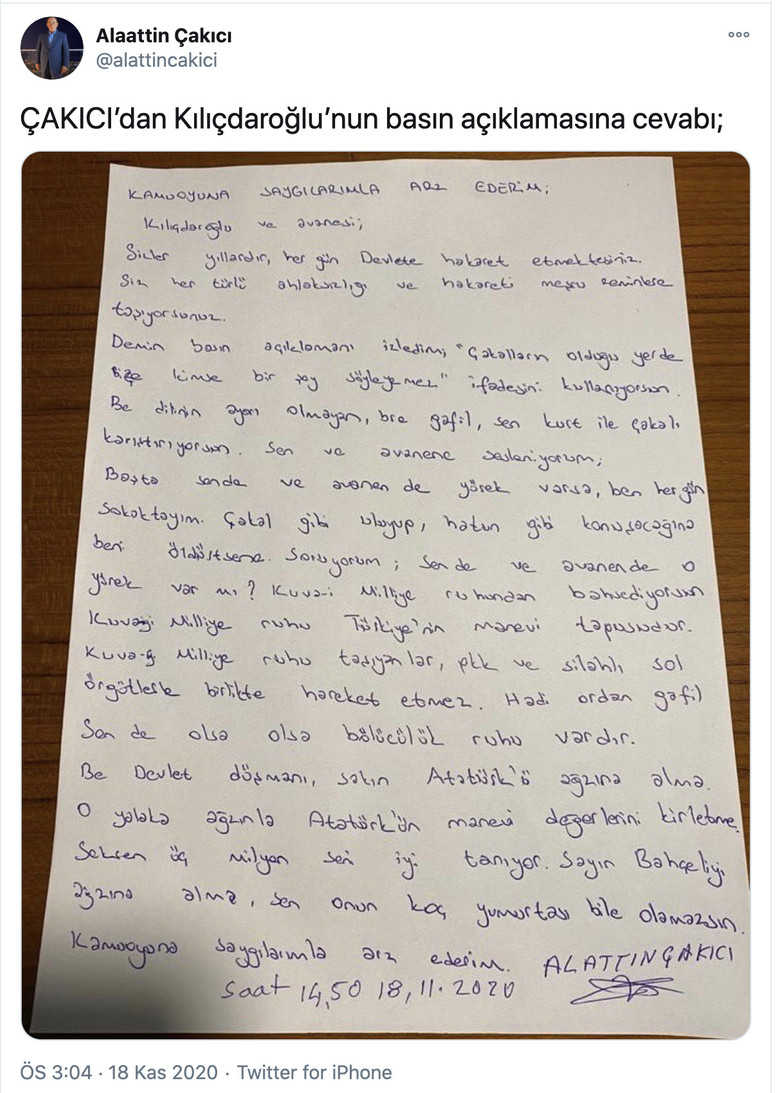 Alaattin Çakıcı
@alattincakici
ÇAKICI’dan Kılıçdaroğlu’nun basın açıklamasına cevabı;
KAMUOYUNA SAYGILARIMLA ARZ EDERİM;
Kılıçdaroğlu ve avanesi;
Sizler yıllardır, her gün Devlete hakaret etmektesiniz.
Siz her türlü ahlaksızlığı ve hakareti meşru zeminlere
taşıyorsunuz.
Demin basın açıklamanı izledim; "Çakalların olduğu yerde
bize kimse bir şey söyleyemez" ifadesini kullanıyorsun.
Be dilinin ayarı olmayan, bre gafil, sen kurt ile çakalı
karıştırıyorsun. Sen ve avanene sesleniyorum;
Başta sende ve avanen de yürek varsa, ben her gün
sokaktayım. Çakal gibi uluyup, hatun gibi konuşacağına
beni öldürtsene. Soruyorum; sen de ve avanende o
yürek var mı? Kuva-i Milliye ruhundan bahsediyorsun
Kuvayi Milliye ruhu Türkiye'nin manevi tapusudur.
Kuva-yi Milliye ruhu taşıyanlar, pkk ve silahlı sol
örgütlerle birlikte hareket etmez. Hadi ordan gafil
Sen de olsa olsa bölücülük ruhu vardır.
Be Devlet düşmanı, sakın Atatürk'ü ağzına alma.
O yalaka ağzınla Atatürk'ün manevi değerlerini kirletme.
Seksen üç milyon seni iyi tanıyor. Sayın Bahçeliyi
ağzına alma, sen onun koç yumurtası bile olamazsın.
Kamuoyuna saygılarımla arz ederim. ALATTİN ÇAKICI
Saat 14,50 18,11.2020
ÖS 3:04 · 18 Kas 2020 · Twitter for iPhone